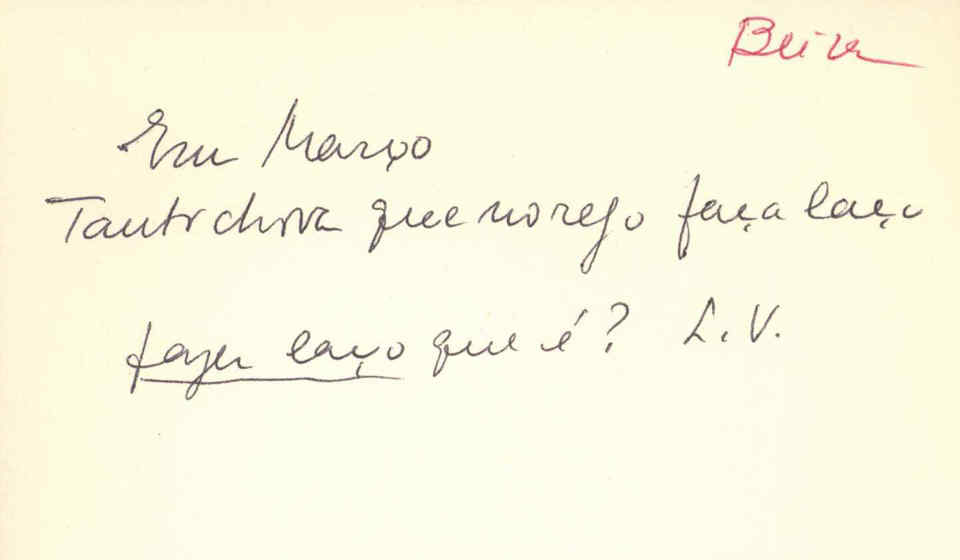 Beira
Em Março
Tanto chova que no rego faça laço
fazer laço que é? L.V.